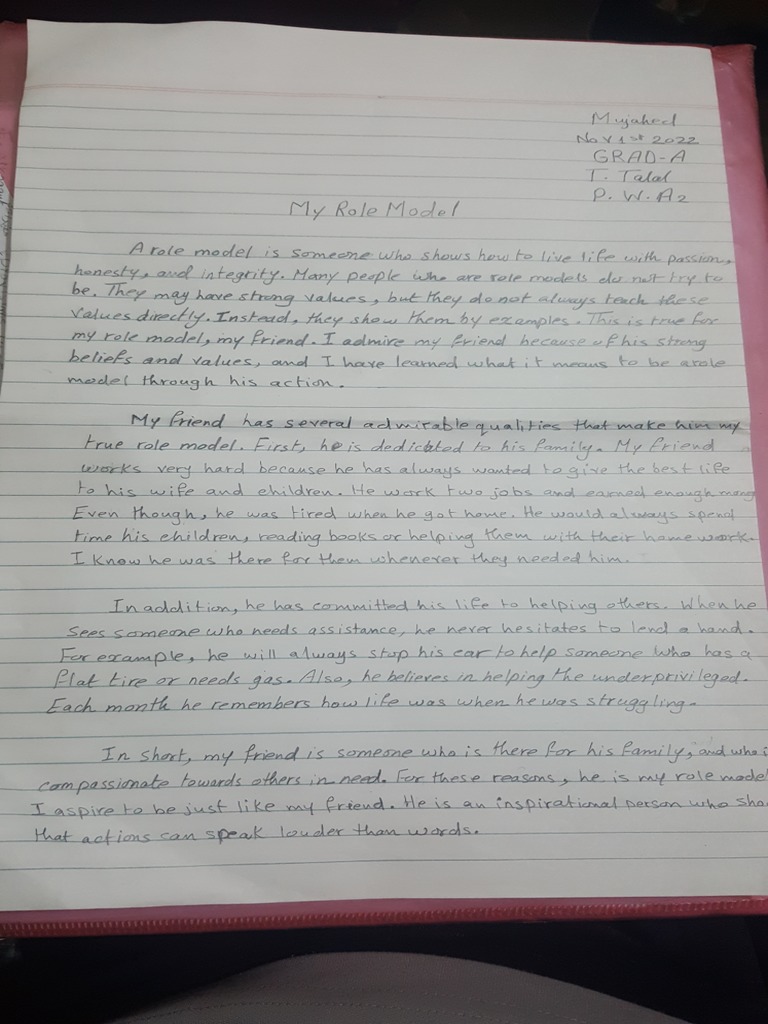 Mujahed
Nov 1st 2022
GRAD-A
T. Talal
P. W. A2
My Role Model
A role model is someone who shows how to live life with passion,
honesty, and integrity. Many people who are role models do not try to
be. They may have strong values, but they do not always teach these
values directly. Instead, they show them by examples. This is true for
my role model, my friend. I admire my friend because of his strong
beliefs and values, and I have learned what it means to be a role
model through his action.
My friend has several admirable qualities that make him my
true role model. First, he is dedicated to his family. My friend
works very hard because he has always wanted to give the best life
to his wife and children. He work two jobs and earned enough
Even though, he was tired when he got home. He would always spend
time his children, reading books or helping them with their home work.
I know he was there for them whenever they needed him.
In addition, he has committed his life to helping others. When he
sees someone who needs assistance, he never hesitates to lend a hand.
For example, he will always stop his car to help someone who has a
flat tire or needs gas. Also, he believes in helping the underprivileged.
Each month he remembers how life was when he was struggling.
In short, my friend is someone who is there for his family, and who i
compassionate towards others in need. For these reasons, he is my role model
I aspire to be just like my friend. He is an inspirational person who sho
that actions can speak louder than words.